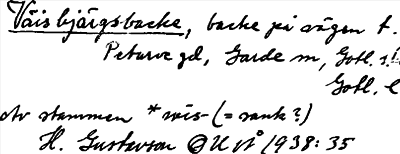 Väisbjärgsbacke, backe på vägen t.
Peturve gd, Garde sn, Gotl. s.
Gotl. l
av stammen *vīs- (= sank?)
H. Gustavson OUÅ 1938: 35